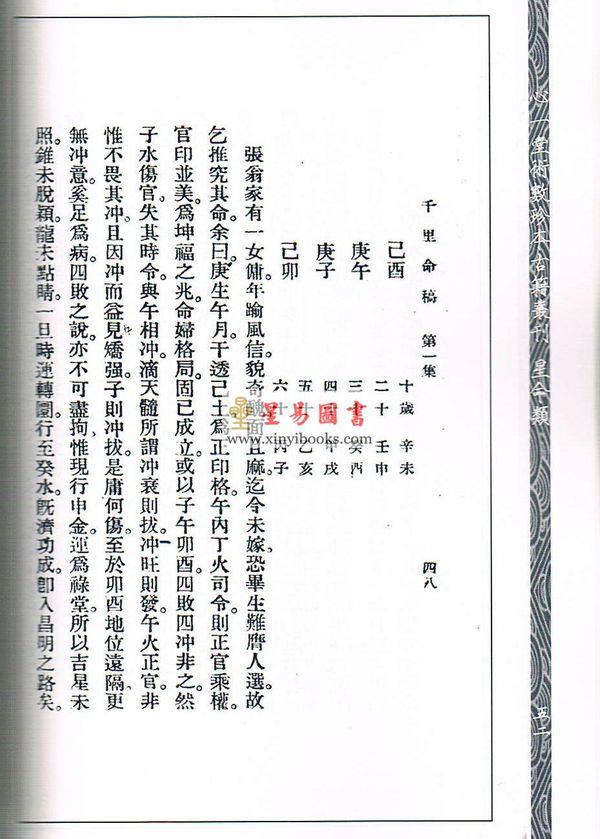 心一堂術數珍本古籍叢刊 星命類
五二
千里命稿 第一集 四八
己酉
庚午
庚子
己卯
十歲 辛未
二十 壬申
三十 癸酉
四十 甲戌
五十 乙亥
六十 丙子
張翁家有一女傭。年踰風信。貌奇醜。面且麻。迄今未嫁。恐畢生難膺人選。故
乞推究其命。余曰。庚生午月。干透己土。爲正印格。午內丁火司令。則正官乘權。
官印並美。爲坤福之兆。命婦格局。固已成立。或以子午卯酉。四敗四冲非之。然
子水傷官。失其時令。與午相冲。滴天髓所謂冲衰則拔。冲旺則發。午火正官。非
惟不畏其冲。且因冲而益見矯强。子則冲拔。是庸何傷。至於卯酉。地位遠隔。更
無冲意。奚足爲病。四敗之說。亦不可盡拘。惟現行申金。運爲祿堂。所以吉星未
照。錐未脫穎。龍未點睛。一旦時運轉圜。行至癸水。旣濟功成。卽入昌明之路矣。
星易圖書
www.xinyibooks.com